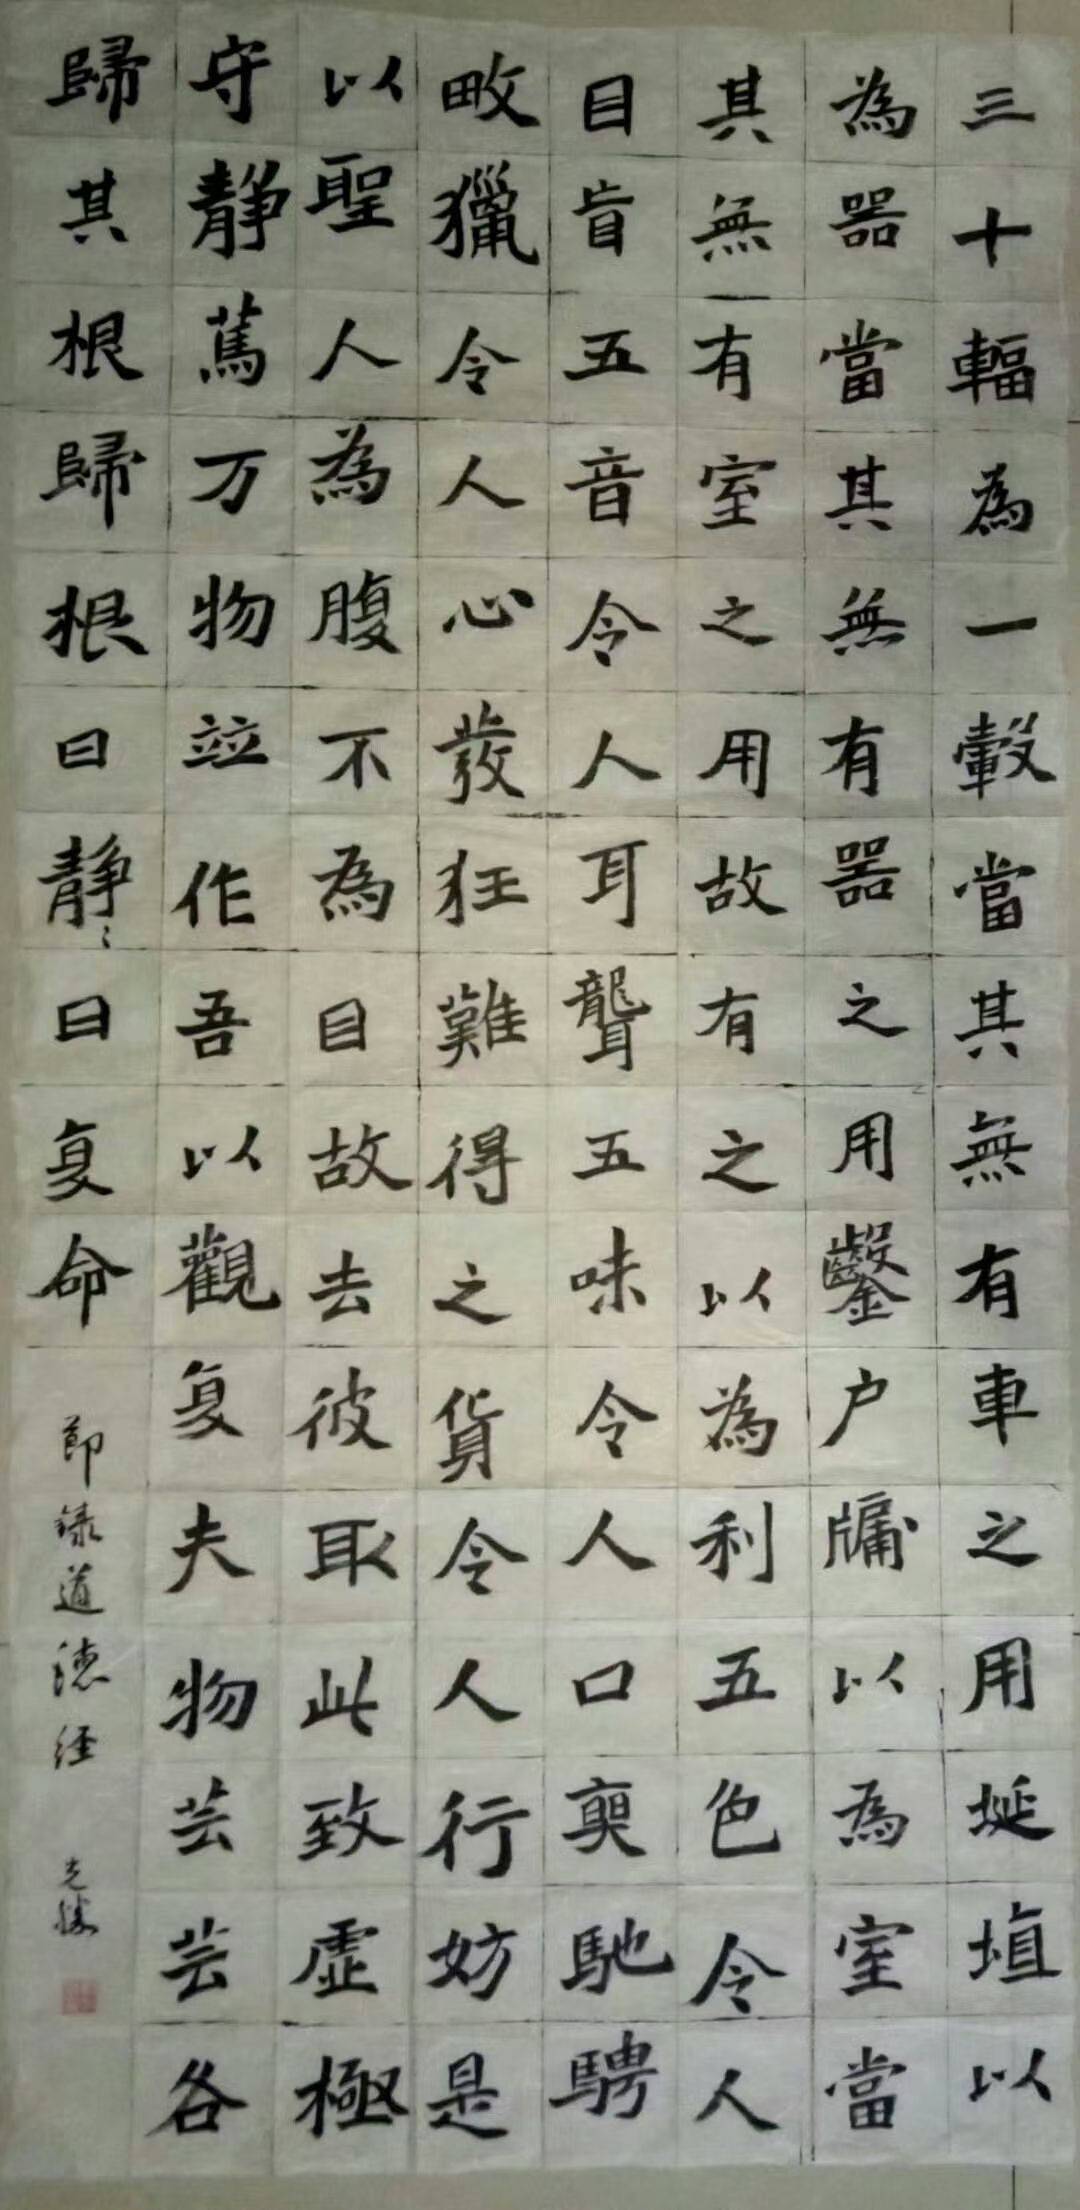 三十輻為一轂當其無有車之用埏埴以
為器當其無有器之用鑿户牖以為室當
其無有室之用故有之以為利五色令人
目盲五音令人耳聾五味令人口爽馳騁
畋獵令人心發狂難得之貨令人行妨是
以聖人為腹不為目故去彼取此致虛極
守靜篤万物竝作吾以觀复夫物芸芸各
歸其根歸根曰靜〻曰复命
節録道德經